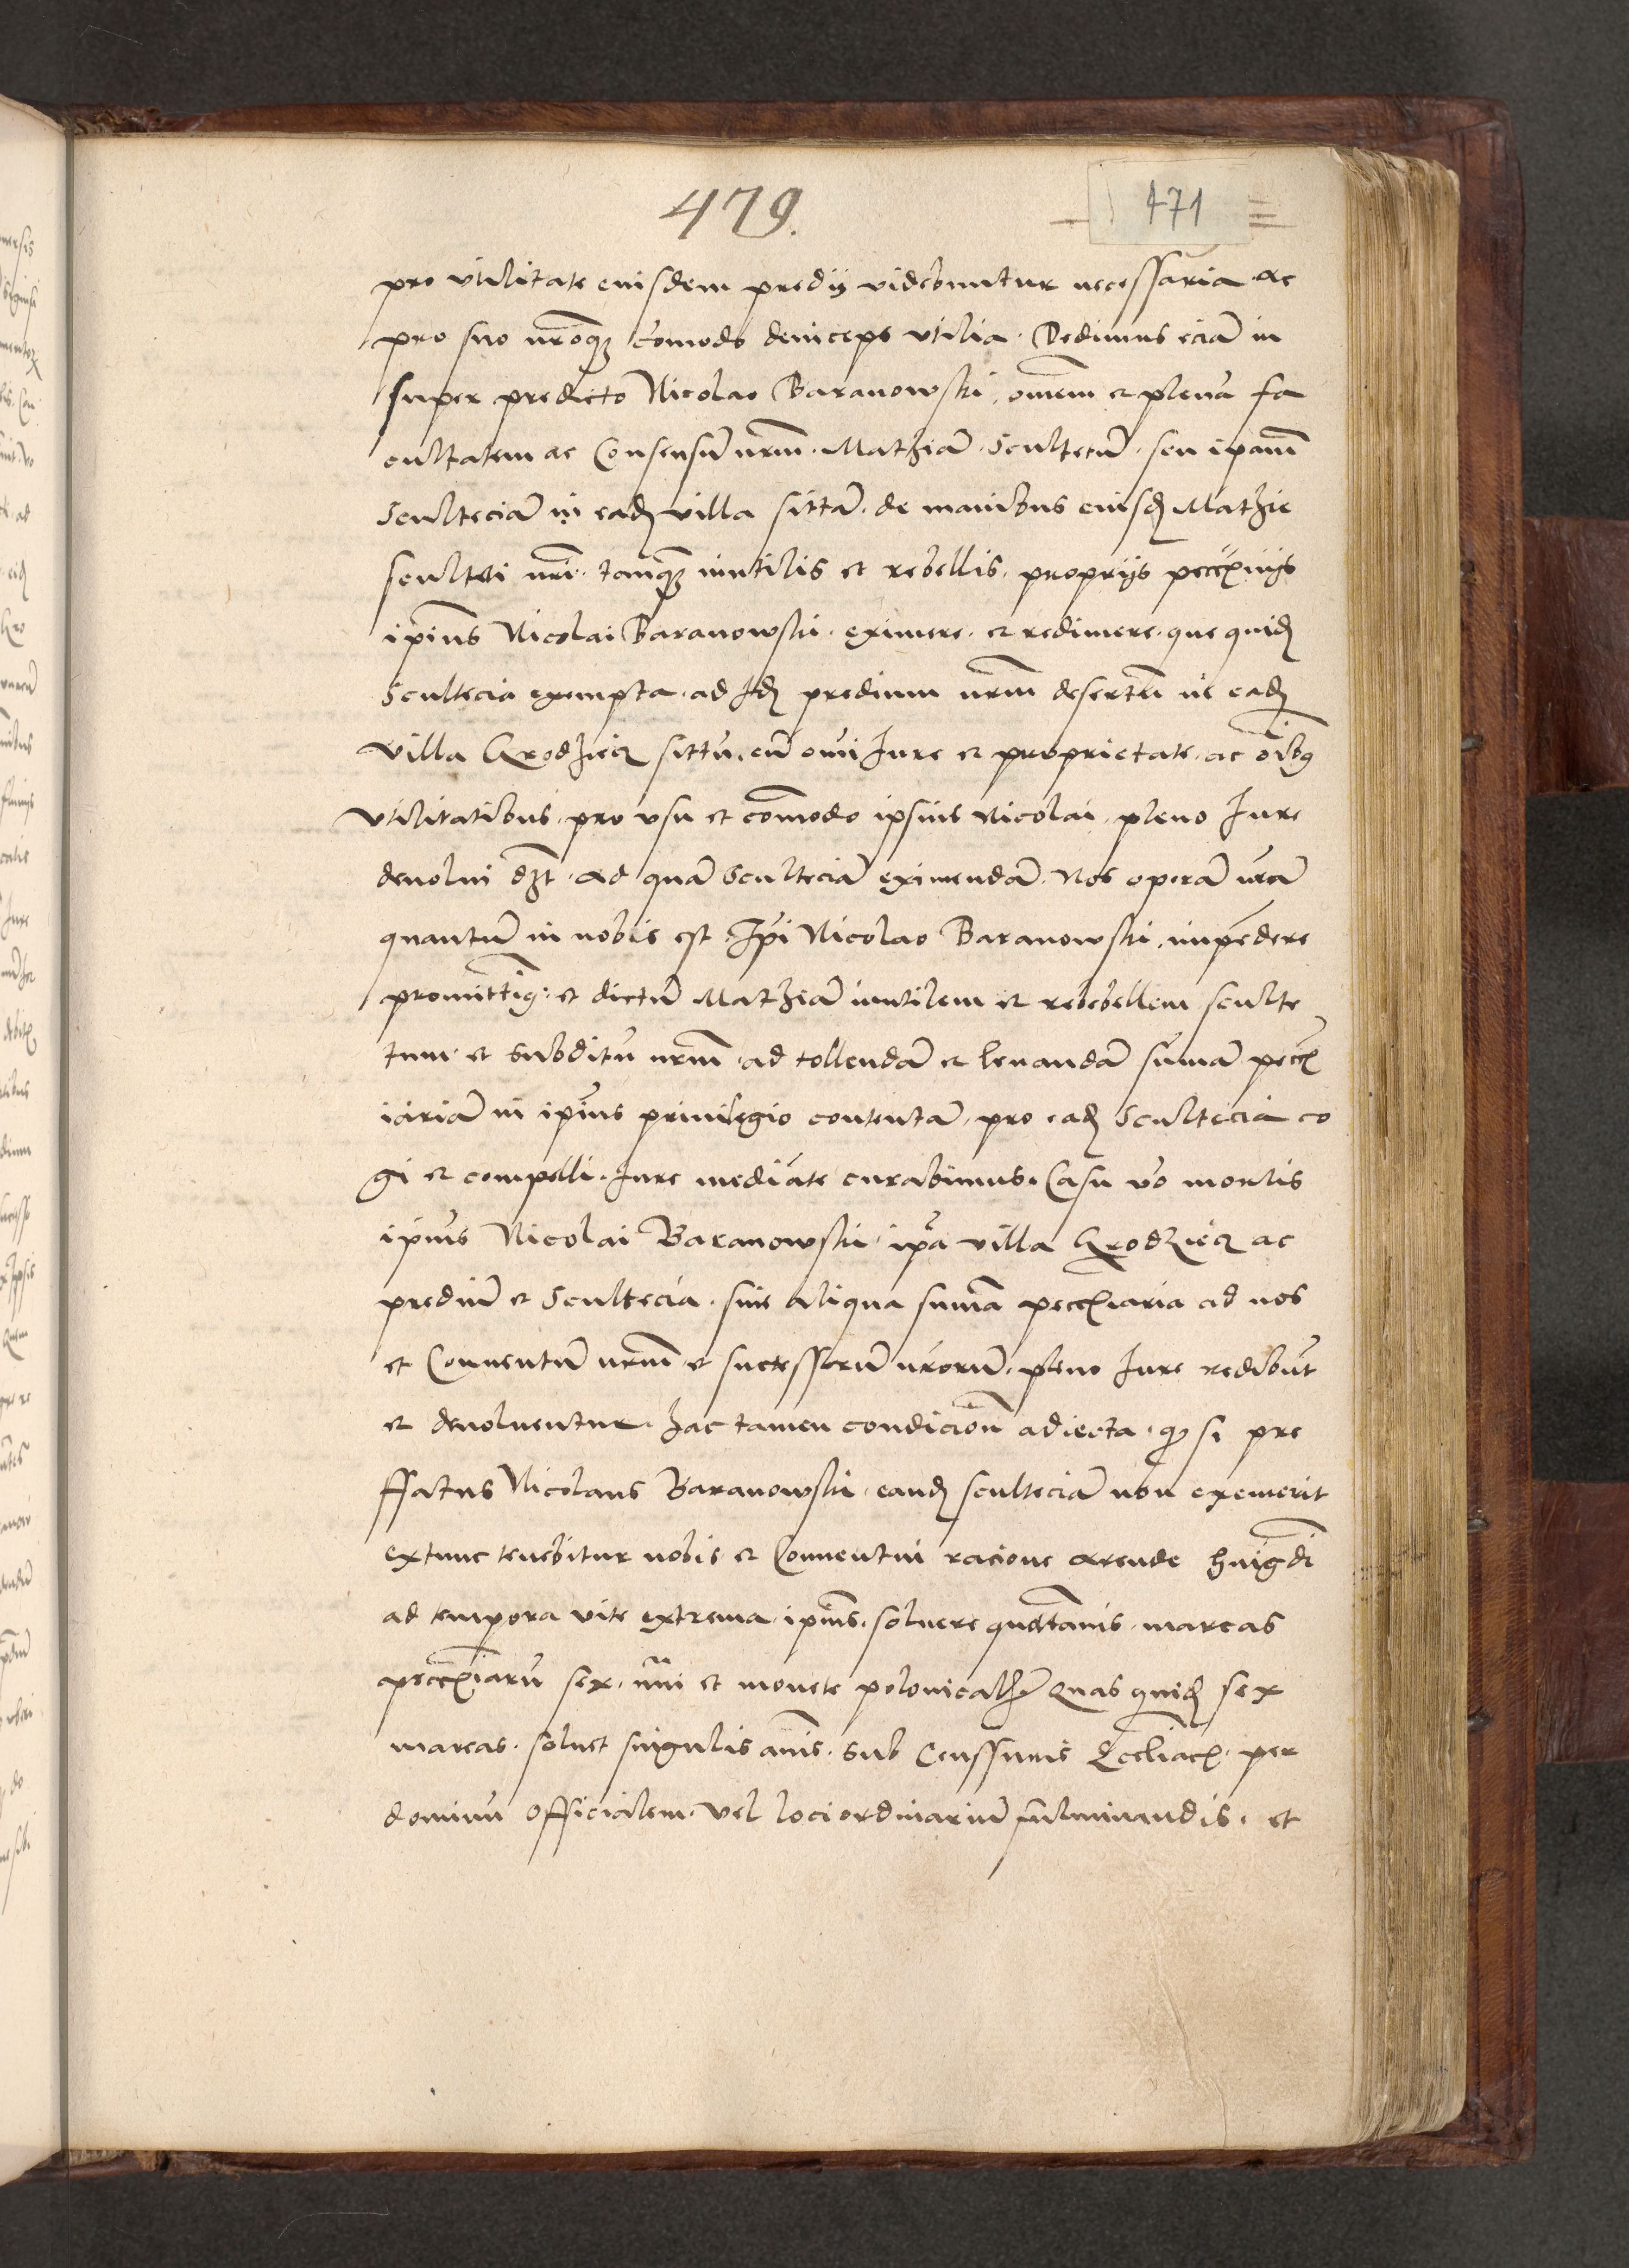 479.
471
pro vtilitate eiusdem predij videbuntur necessaria ac
pro suo nr̄oq₃ com̄odo deinceps vtilia. Dedimus eciā in
super predicto Nicolao Baranowski, om̄em et plenā fa
cultatem ac Consensū nrm̄. Mathiā Scultetū seu ipam̄
Sculteciā in eadꝫ villa sittā. de manibus eiusdꝫ Mathie
sculteti nr̄i. tanq̄ꝫ inutilis et rebellis, proprijs peccunijs
ipīus Nicolai Baranowski. eximere. et redimere. que quidꝫ
Scultecia exempta. ad Idꝫ predium nrm̄ desertū in eadꝫ
villa Grodziecz sittū, cū omi Iure et proprietate. ac oībꝯ
vtilitatibus. pro vsu et com̄odo ipsius Nicolai. pleno Iure
deuolui dꝫt. ad quā Scultecia eximendā. Nos operā nrā
quantū in nobis est. Ip̄i Nicolao Baranowski. impēdere
promittimꝯ. et dictū Mathiā inutilem et rebebellem sculte
tum et subditū nrm̄. ad tollendā et leuandā sum̄ā peccu
iariā in ipīus priuilegio contentā. pro eadꝫ Scultecia co
gi et compelli. Iure mediāte curabimus. Casu vo mortis
ipīus Nicolai Baranowski. ipā villa Grodziecz ac
prediū et Scultecia. sine aliqua sum̄a peccuniaria ad nos
et Conuentū nrm̄ et successorū nrorū. pleno Iure redibūt
et deuoluentur. hac tamen condiciōn adiecta. ꝙ si pre
ffatus Nicolaus Baranowski. eandꝫ scultecià non exemerit
extunc tenebitur nobis et Conuentui racione arende huiꝯdi
ad tempora vite extrema ipīus. soluere quottan̄is. marcas
peccuniarū sex. nūi et monete polonicalꝭ Quas quidꝫ sex
marcas. soluet singulis an̄is. sub Censsuris Eccliacꝭ. per
dominū Officialem. vel loci ordinariū fulminandis. et